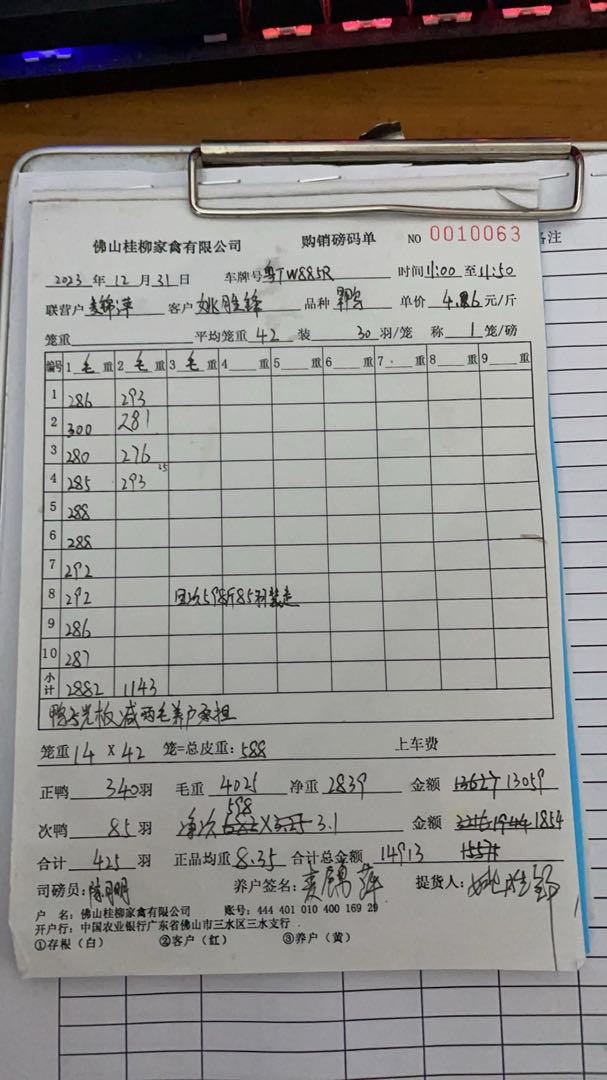 备注
佛山桂柳家禽有限公司 购销磅码单 NO 0010063
2023 年 12 月 31 日 车牌号 粤TW885R 时间 11:00 至 11:50
联营户 麦锦萍 客户 姚胜锋 品种 鸭 单价 元/斤
笼重 平均笼重 42 装 30 羽/笼 称 1 笼/磅
编号 1 毛 重 2 毛 重 3 毛 重 4 重 5 重 6 重 7 重 8 重 9 重
1 286 293
2 300 281
3 280 276
4 285 293 25
5 288
6 288
7 292
8 292 次598斤85羽装走
9 286
10 287
小计 2882 1143
鸭光板减两毛养户承担
笼重 14 X 42 笼=总皮重: 588 上车费
正鸭 340 羽 毛重 4025 净重 2839 金额 13627 13059
598
次鸭 85 羽 3.25 3.1 金额 1944 1854
合计 425 羽 正品均重 8.35 合计总金额 14913 15571
司磅员: 陈明 养户签名: 麦锦萍 提货人: 姚胜锋
户 名: 佛山桂柳家禽有限公司 账号: 444 401 010 400 169 29
开户行: 中国农业银行广东省佛山市三水区三水支行
①存根(白) ②客户(红) ③养户(黄)